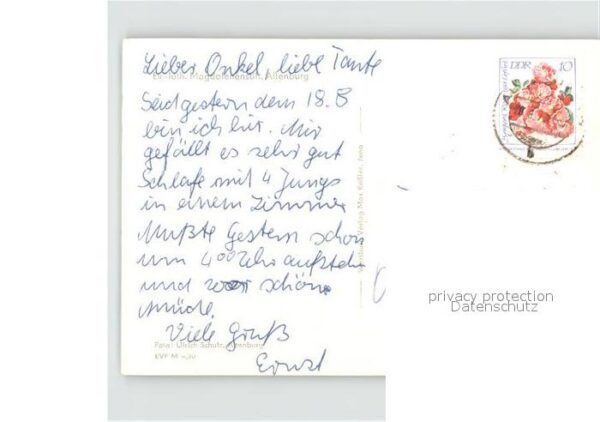 Lieber Onkel, liebe Tante
Ev.-luth. Magdalenenstift, Altenburg
Seid gestern dem 18.8
bin ich hir. Mir
gefällt es sehr gut
Schlafe mit 4 Jungs
in einem Zimmer
Mußte Gestern schon
um 400 Uhr aufstehn
und war schön
müde.
Viele Gruß
Ernst
Foto: Ulrich Schütz, Altenburg
Verlag Max Keßler, Jena
DDR 10
privacy protection
Datenschutz